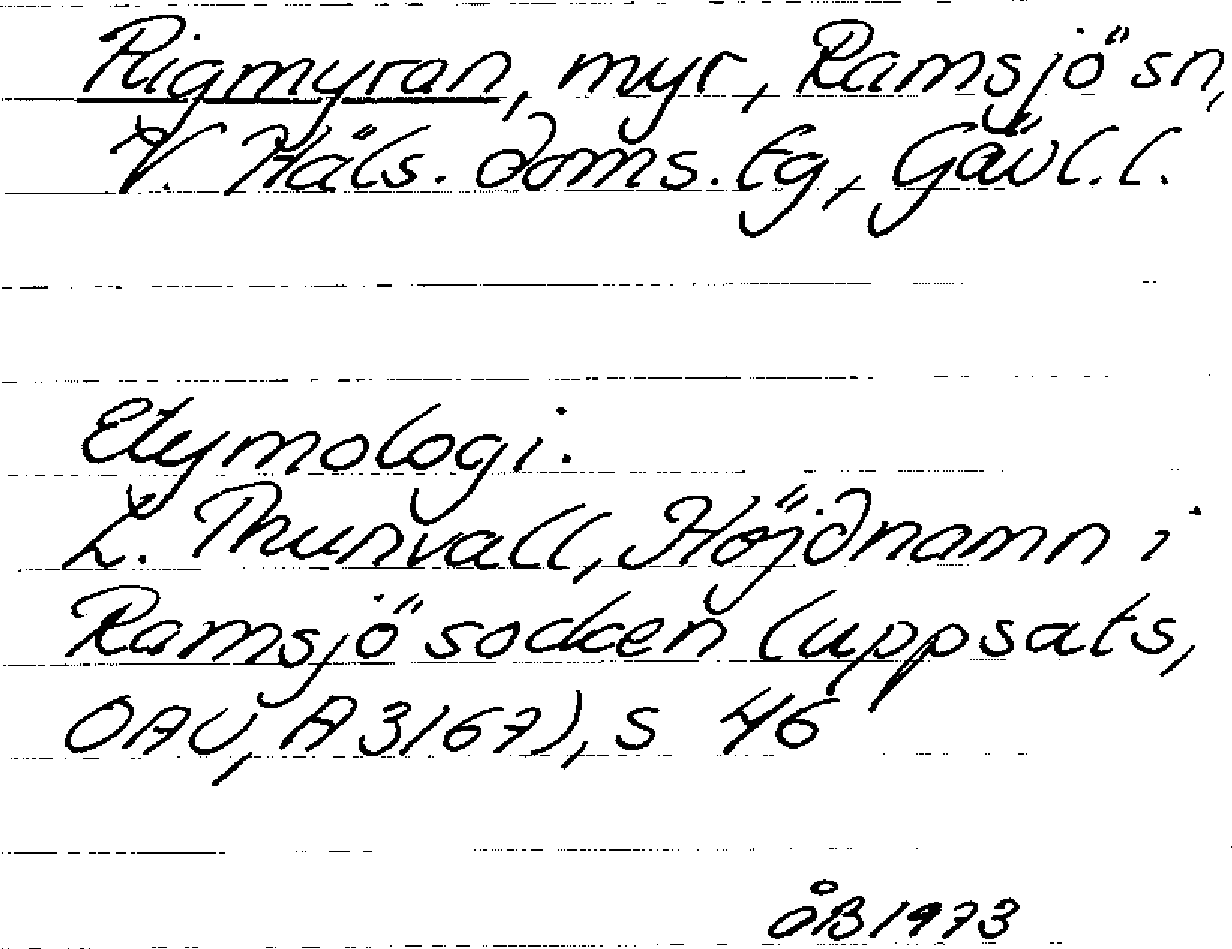 Rigmyran, myr, Ramsjö sn,
V. Häls. doms. tg, Gävl. l.
Etymologi.
L. Thunvall, Höjdnamn i
Ramsjö socken (uppsats,
OAU, A 3167), s 46
ÅB 1973